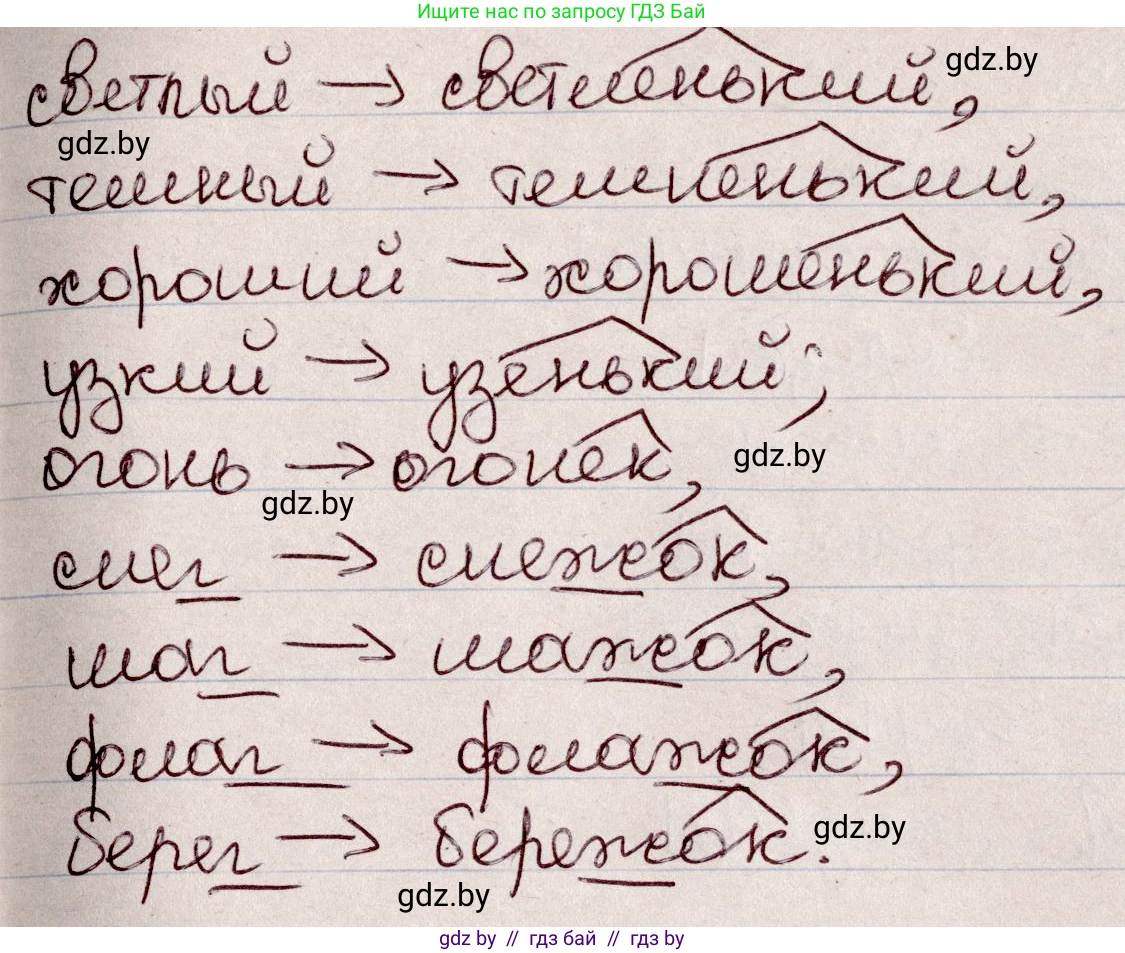 Ищите нас по запросу ГДЗ Бай
светлый → светленький,
gdz.by
gdz.by
темный → темненький,
хороший → хорошенький,
узкий → узенький;
огонь → огонек,
gdz.by
gdz.by
снег → снежок,
шаг → шажок,
флаг → флажок,
берег → бережок.
gdz.by
gdz.by
gdz by // гдз бай // гдз by